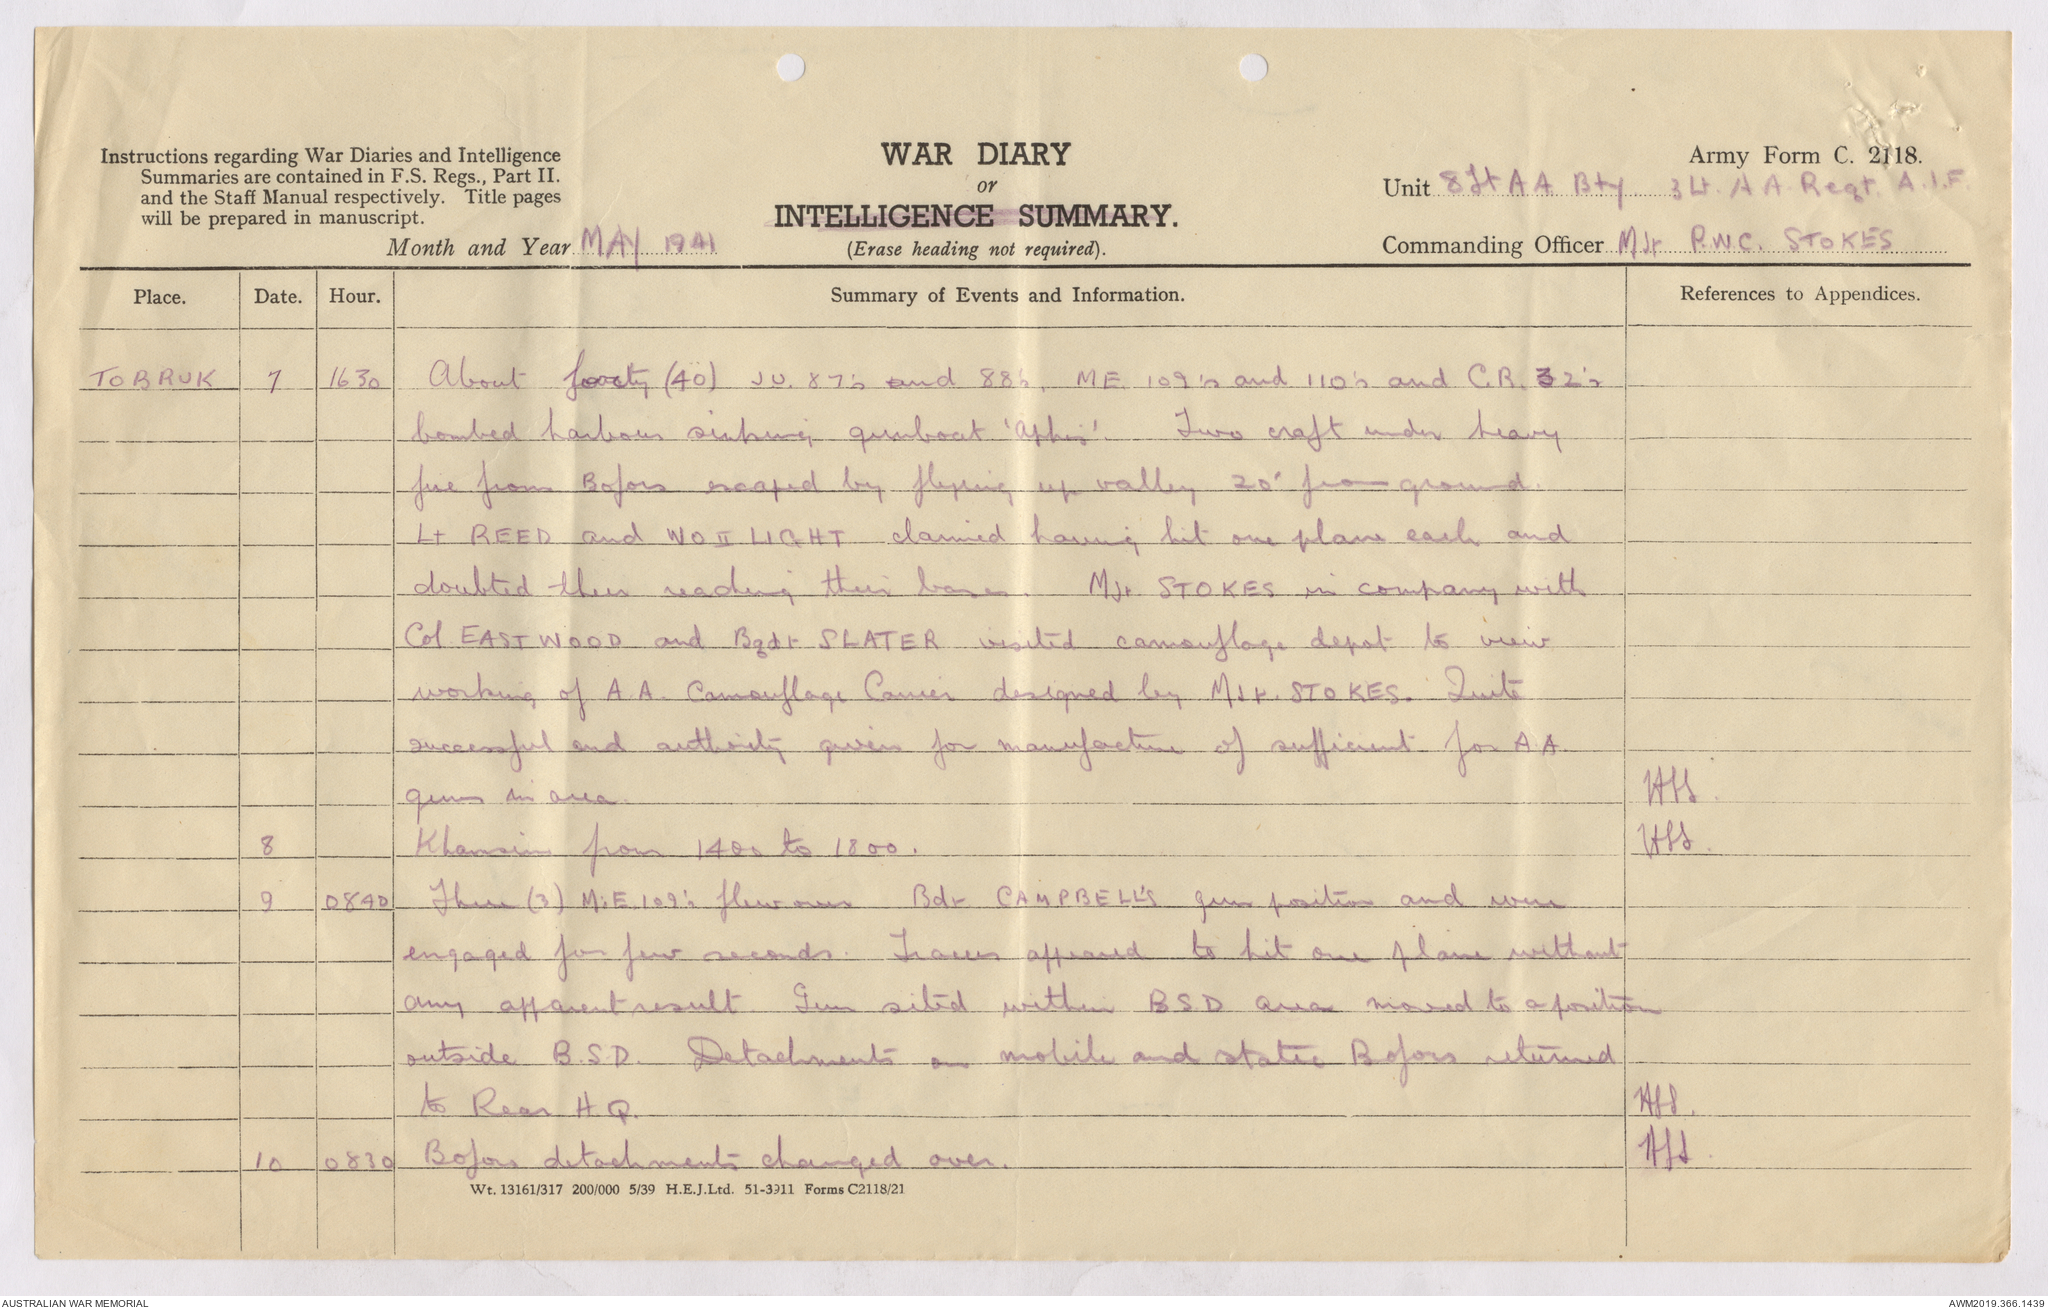 Instructions regarding War Diaries and Intelligence
Summaries are contained in F.S. Regs., Part II.
and the Staff Manual respectively. Title pages
will be prepared in manuscript.
Month and Year MAY 1941
WAR DIARY
or
INTELLIGENCE SUMMARY.
(Erase heading not required).
Army Form C. 2118.
Unit 8 Lt A A Bty 3 Lt. A A. Regt. A.I.F.
Commanding Officer MJr P.W.C. STOKES
Place. Date. Hour. Summary of Events and Information. References to Appendices.
TOBRUK 7 1630 About forty (40) JU. 87's and 88's, ME 109's and 110's and C.R. 32's
bombed harbour sinking gunboat 'Aphis'. Two craft under heavy
fire from Bofors escaped by flying up valley 20' from ground.
Lt REED and WO II LIGHT claimed having hit one plane each and
doubted their reaching their bases. MJr STOKES in company with
Col EASTWOOD and Bgdr SLATER visited camouflage depot to view
working of A.A. Camouflage Carrier designed by MJr. STOKES. Quite
successful and authority given for manufacture of sufficient for A A
guns in area.
8 Khamsin from 1400 to 1800.
9 0840 Three (3) M.E 109's flew over Bdr CAMPBELL'S gun position and were
engaged for few seconds. Traces appeared to hit one plane without
any apparent result. Gun sited within B S D area moved to a position
outside B.S.D. Detachments on mobile and static Bofors returned
to Rear H Q.
10 0830 Bofors detachments changed over.
Wt. 13161/317 200/000 5/39 H.E.J.Ltd. 51-3911 Forms C2118/21
AUSTRALIAN WAR MEMORIAL
AWM2019.366.1439